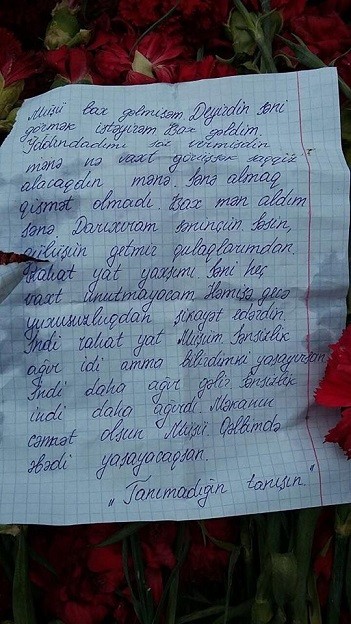 Müşü bax gəlmişəm. Deyirdin səni
görmək istəyirəm. Bax gəldim.
Yadındadımı söz vermisdin
mənə nə vaxt görüşsək saqqız
alacaqdın mənə. Sənə almaq
qismət olmadı. Bax mən aldım
sənə. Darıxıram səninçün. Səsin,
gülüşün getmir qulaqlarımdan.
Rahat yat yaxşımı. Səni heç
vaxt unutmayacam. Həmişə gecə
yuxusuzluqdan şikayət edərdin.
İndi rahat yat Müşüm. Sənsizlik
ağır idi amma bilirdimki yaşayırsan
İndi daha ağır gəlir. Sənsizlik
indi daha ağırdı. Məkanın
cənnət olsun Müşü. Qəlbimdə
əbədi yaşayacaqsan.
„Tanımadığın tanışın."